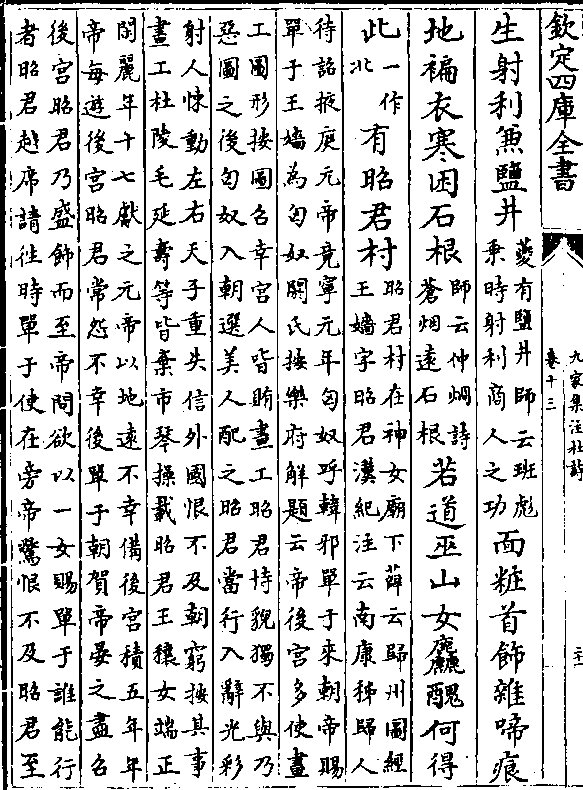 欽定四庫全書
九家集注杜詩
卷十三
生射利兼鹽井夔有鹽井師云班彪乗時射利商人之功面粧首飾雜啼痕
地褊衣寒困石根師云仲烱詩蒼烟遠石根若道巫山女麤醜何得
此一作北有昭君村昭君村在神女廟下薛云歸州圖經王嬙字昭君漢紀注云南康秭歸人
待詔掖庭元帝竟寧元年匈奴呼韓邪單于來朝帝賜
單于王嬙為匈奴閼氏按樂府解題云帝後宮多使畫
工圖形按圖名幸宮人皆賄畫工昭君恃貌獨不與乃
惡圖之後匈奴入朝選美人配之昭君當行入辭光彩
射人悚動左右天子重失信外國恨不及朝窮按其事
畫工杜陵毛延壽等皆棄市琴操載昭君王穰女端正
閑麗年十七獻之元帝以地遠不幸備後宮積五年年
帝每遊後宮昭君常怨不幸後單于朝賀帝宴之盡召
後宮昭君乃盛飾而至帝問欲以一女賜單于誰能行
者昭君越席請往時單于使在旁帝驚恨不及昭君至